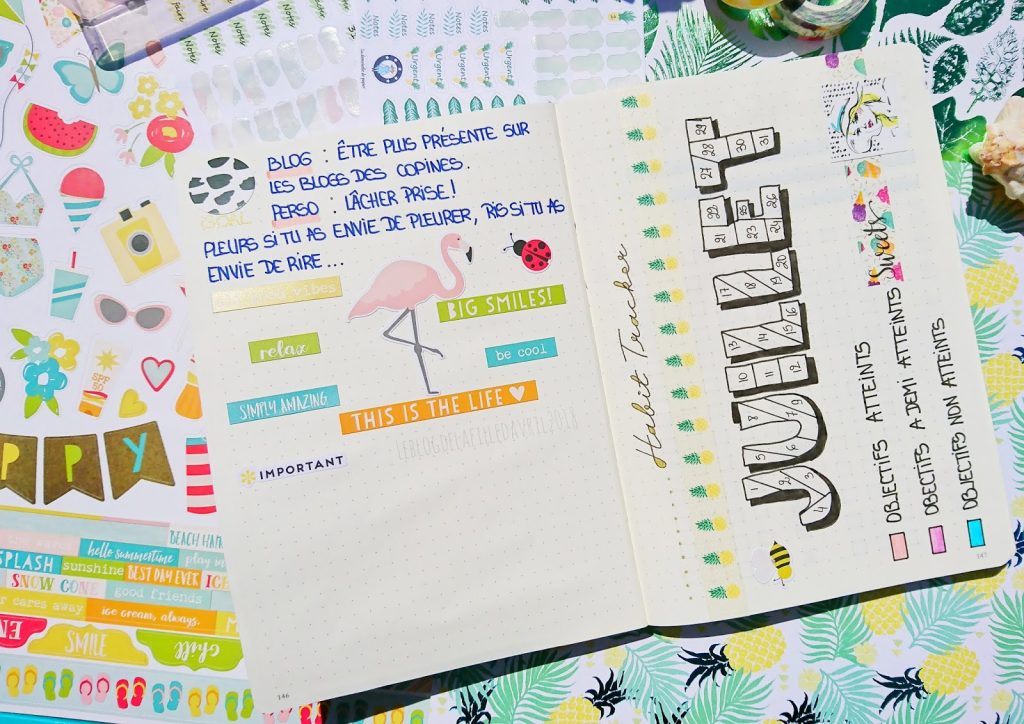 BLOG : ÊTRE PLUS PRÉSENTE SUR
LES BLOGS DES COPINES.
PERSO : LÂCHER PRISE !
PLEURS SI TU AS ENVIE DE PLEURER, RIS SI TU AS
ENVIE DE RIRE...
GOAL
vibes
BIG SMILES!
relax
be cool
SIMPLY AMAZING
THIS IS THE LIFE
LEBLOGDELAFILLEDAVRIL2018
IMPORTANT
146
Habit Tracker
JUILLET
1 2 3 4 5 6 7 8 9 10 11 12 13 14 15 16 17 18 19 20 21 22 23 24 25 26 27 28 29 30 31
Sweet
OBJECTIFS ATTEINTS
OBECTIFS A DEMI ATTEINTS
OBJECTIFS NON ATTEINTS
147
Notes
Notes
Notes
Notes
Urgent
Urgent
Urgent
Urgent
SPF
50
PPY
BEACH
hello summertime
play
SPLASH
sunshine
BEST DAY EVER
ICE
SNOW CONE
good friends
cares away
ice cream, always.
SMILE
chill